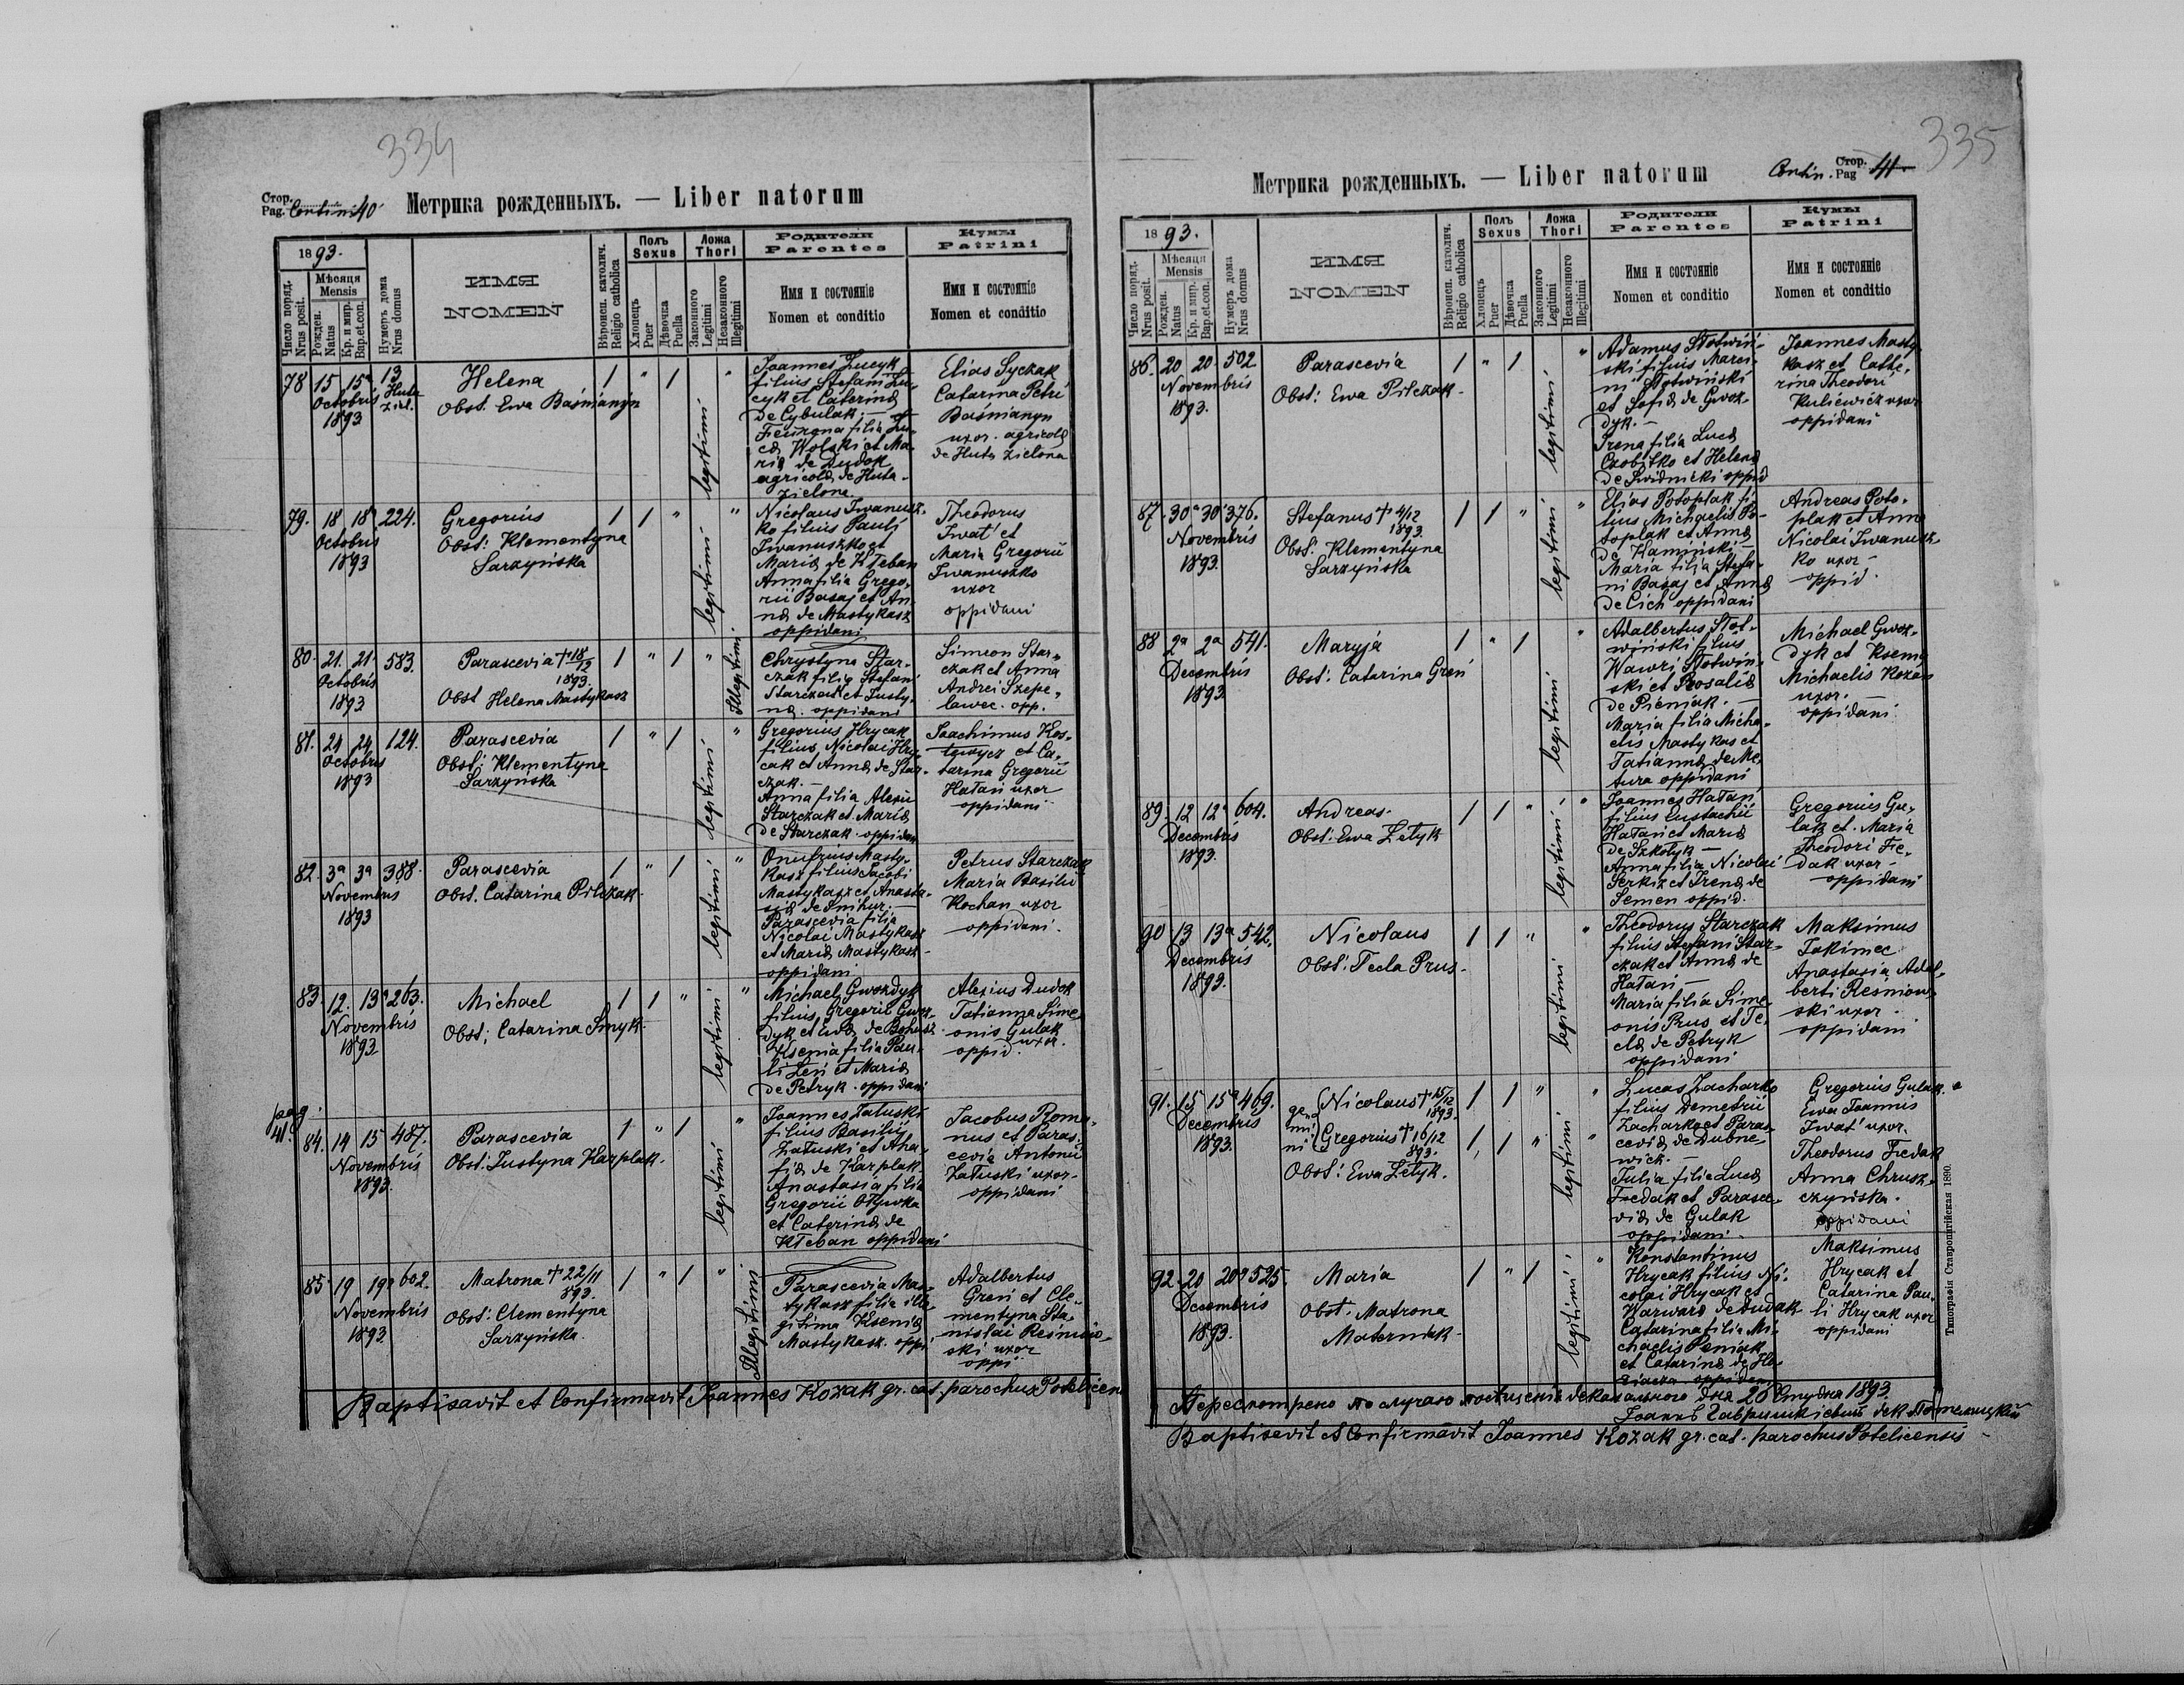 334
Стор.
Pag. Contin. 40
Метрика рожденныхъ. — Liber natorum
1893.
Число поряд.
Nrus posit.
Мѣсяця
Mensis
Рожден.
Natus
Кр. и мир.
Bap.et.con.
Нумеръ дома
Nrus domus
ИМЯ
NOMEN
Вѣроисп. католич.
Religio catholica
Полъ
Sexus
Хлопецъ
Puer
Дѣвочка
Puella
Ложа
Thori
Законного
Legitimi
Незаконного
Illegitimi
Родители
Parentes
Имя и состоянiе
Nomen et conditio
Кумы
Patrini
Имя и состоянiе
Nomen et conditio
78 15 15ª 13
Octobris Huta
1893 Ziel.
Helena
Obst. Ewa Baśnianyn
1 " 1 legitimi "
Joannes Lucyk
filius Stefani Lu-
cyk et Caterinæ
de Cybulak. — et
filia Lu-
cæ Wolski et Ma-
riæ de Dudok
agricolæ de Huta-
zielona.
Elias Syczak
Catarina Petri
Baśnianyn
uxor. agricolæ
de Huta zielona
79. 18 18ª 224.
Octobris
1893
Gregorius
Obst: Klementyna
Sarzyńska
1 1 " legitimi "
Nicolaus Iwanusz-
ko filius Pauli
Iwanuszko et
Mariæ de Kłeban
Anna filia Grego-
rii Basaj et An-
næ de Mastykasz
oppidani
Theodorus
Iwat' et
Maria Gregorii
Iwanuszko
uxor
oppidani
80. 21. 21. 583.
Octobris
1893
Parascevia † 18/12
1893.
Obst Helena Mastykasz
1 " 1 " Illegitimi
Chrystyna Star-
czak filia Stefani
Starczak et Justy-
næ. oppidani
Simeon Star-
czak et Anna
Andrei Szepe-
lawec. opp.
81. 24 24 124.
Octobris
1893
Parascevia
Obst: Klementyna
Sarzyńska
1 " 1 legitimi "
Gregorius Hrycak
filius Nicolai Hry-
cak et Annæ de Star-
czak. —
Anna filia Alexii
Starczak et Mariæ
de Starczak. oppidani
Joachimus Kos-
tewycz et Ca-
tarina Gregorii
Hałań uxor
oppidani
82. 3ª 3ª 388.
Novembris
1893
Parascevia
Obst. Catarina Pilczak.
1 " 1 legitimi "
Onufrius Masty-
kasz filius Jacobi
Mastykasz et Anasta-
siæ de Snihur. —
Parascevia filia
Nicolai Mastykasz
et Mariæ Mastykasz-
oppidani
Petrus Starczak
Maria Basilii
Kochan uxor
oppidani.
83. 12. 13ª 263.
Novembris
1893
Michael
Obst; Catarina Smyk.
1 1 " legitimi "
Michael Gwozdyk
filius Gregorii Gwoz-
dyk et Evæ de Bohusz.
Ksenia filia Pau-
li Łeń et Mariæ
de Petryk. oppidani
Alexius Dudok
Tatianna Sime-
onis Gulak
uxor.
oppid.
pag.
41.
84. 14 15 487.
Novembris
1893.
Parascevia
Obst: Justyna Karplak.
1 " 1 legitimi "
Joannes Załuski
filius Basilii
Załuski et Aha-
fiæ de Karplak.
Anastasia filia
Gregorii Ohywka
et Caterinæ de
Kłeban oppidani
Jacobus Roma-
nus et Paras-
cevia Antonii
Załuski uxor-
oppidani
85. 19 19ª 602.
Novembris
1893
Matrona † 22/11
893.
Obst: Clementyna
Sarzyńska.
1 " 1 " Illegitimi
Parascevia Mas-
tykasz filia ille-
gitima Kseniæ
Mastykasz. oppi.
Adalbertus
Greń et Cle-
mentyna Sta-
nislai Reśniow-
ski uxor
oppi
Baptisavit et Confirmavit Joannes Kozak gr. cat. parochus Potelicen
335
Contin.
Стор.
Pag 41
Метрика рожденныхъ. — Liber natorum
1893.
Число поряд.
Nrus posit.
Мѣсяця
Mensis
Рожден.
Natus
Кр. и мир.
Bap.et.con.
Нумеръ дома
Nrus domus
ИМЯ
NOMEN
Вѣроисп. католич.
Religio catholica
Полъ
Sexus
Хлопецъ
Puer
Дѣвочка
Puella
Ложа
Thori
Законного
Legitimi
Незаконного
Illegitimi
Родители
Parentes
Имя и состоянiе
Nomen et conditio
Кумы
Patrini
Имя и состоянiе
Nomen et conditio
86. 20 20. 502
Novembris
1893.
Parascevia
Obst: Ewa Pilczak-
1 " 1 legitimi "
Adamus Słotwiń-
ski filius Marci-
ni Słotwiński
et Sofiæ de Gwoz-
dyk. —
Irena filia Lucæ
Czobitko et Helenæ
de Swidnicki oppid
Joannes Masty-
kasz et Cathe-
rina Theodori
Kuliewicz uxor
oppidani
87. 30ª 30ª 376.
Novembris
1893.
Stefanus † 4/12
1893.
Obst. Klementyna
Sarzyńska
1 1 " legitimi "
Elias Potoplak fi-
lius Michaelis Po-
toplak et Annæ
de Kamiński —
Maria filia Stefa-
ni Basaj et Annæ
de Cich oppidani
Andreas Poto-
plak et Anna
Nicolai Iwanusz-
ko uxor-
oppid.
88 2ª 2ª 541.
Decembris
1893
Maryja
Obst: Catarina Greń
1 " 1 legitimi "
Adalbertus Słot-
wiński filius
Wawri Słotwiń-
ski et Rosaliæ
de Pieniak. —
Maria filia Micha-
elis Mastykas et
Tatiannæ de Ma-
tura oppidani
Michael Gwoz-
dyk et Ksenia
Michaelis Kozań
uxor. —
oppidani
89. 12 12ª 604.
Decembris
1893.
Andreas.
Obst: Ewa Zetyk
1 1 " legitimi "
Joannes Hałań
filius Eustachii
Hałań et Mariæ
de Szkolyk —
Anna filia Nicolai
Serkiz et Irenæ de
Semen oppid.
Gregorius Gu-
lak et. Maria
Theodori Fe-
dak uxor-
oppidani
90 13 13ª 542.
Decembris
1893.
Nicolaus
Obst: Tecla Prus-
1 1 " legitimi "
Theodorus Starczak
filius Stefani Star-
czak et Annæ de
Hałań —
Maria filia Sime-
onis Prus et Te-
clæ de Petryk
oppidani
Maksimus
Jakimec
Anastasia Adal-
berti Resniow-
ski uxor.
oppidani
91. 15 15ª 469.
Decembris
1893.
ge-
mi-
ni
Nicolaus † 15/12
1893.
Gregorius † 16/12
893.
Obst: Ewa Zetyk.
1 1 " legitimi "
1, 1 "
Lucas Zacharko
filius Demetrii
Zacharko et Paras-
ceviæ de Dubne-
wicz. —
Julia filia Lucæ
Fredak et Parasce-
viæ de Gulak
oppidani.
Gregorius Gulak. e
Ewa Joannis
Iwat' uxor.
Theodorus Fredak
Anna Chrusz-
czyńska.
oppidani
92. 20 20ª 525.
Decembris
1893.
Maria
Obst: Matrona
Materniak-
1 " 1 legitimi "
Konstantinus
Hrycak filius Ni-
colai Hrycak et
Warwaræ de Dudak.
Catarina filia Mi-
chaelis Peniak
et Catarinæ de Ho-
oppidani
Maksimus
Hrycak et
Catarina Pau-
li Hrycak uxor
oppidani
Пересмотрено по случаю посѣщенія деканального дня 26 Грудня 1893.
Іоаннъ Гавришкевичь дек.
Baptisavit et Confirmavit Joannes Kozak gr. cat. parochus Potelicensis
Типографія Ставропигійская 1890.